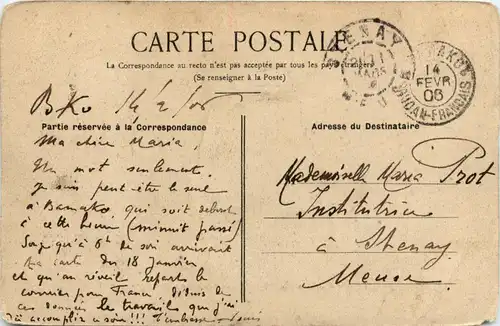 CARTE POSTALE
La Correspondance au recto n'est pas acceptée par tous les pays étrangers
(Se renseigner à la Poste)
STENAY
MEUSE
BAMAKO
14
FEVR
06
SOUDAN-FRANÇAIS
Bko
Partie réservée à la Correspondance
Adresse du Destinataire
Ma chère Maria,
Un mot seulement.
Je suis peut être le seul
à Bamako qui soit debout
à cette heure (minuit passé)
Jusqu'à 6h de soir arrivait
ta carte du 18 Janvier
et qu'au réveil repartes le
courrier pour France
ces données le travail que j'ai
à accomplir ce soir!!! T'embrasse
Mademoiselle Maria Prot
Institutrice
à Stenay
Meuse